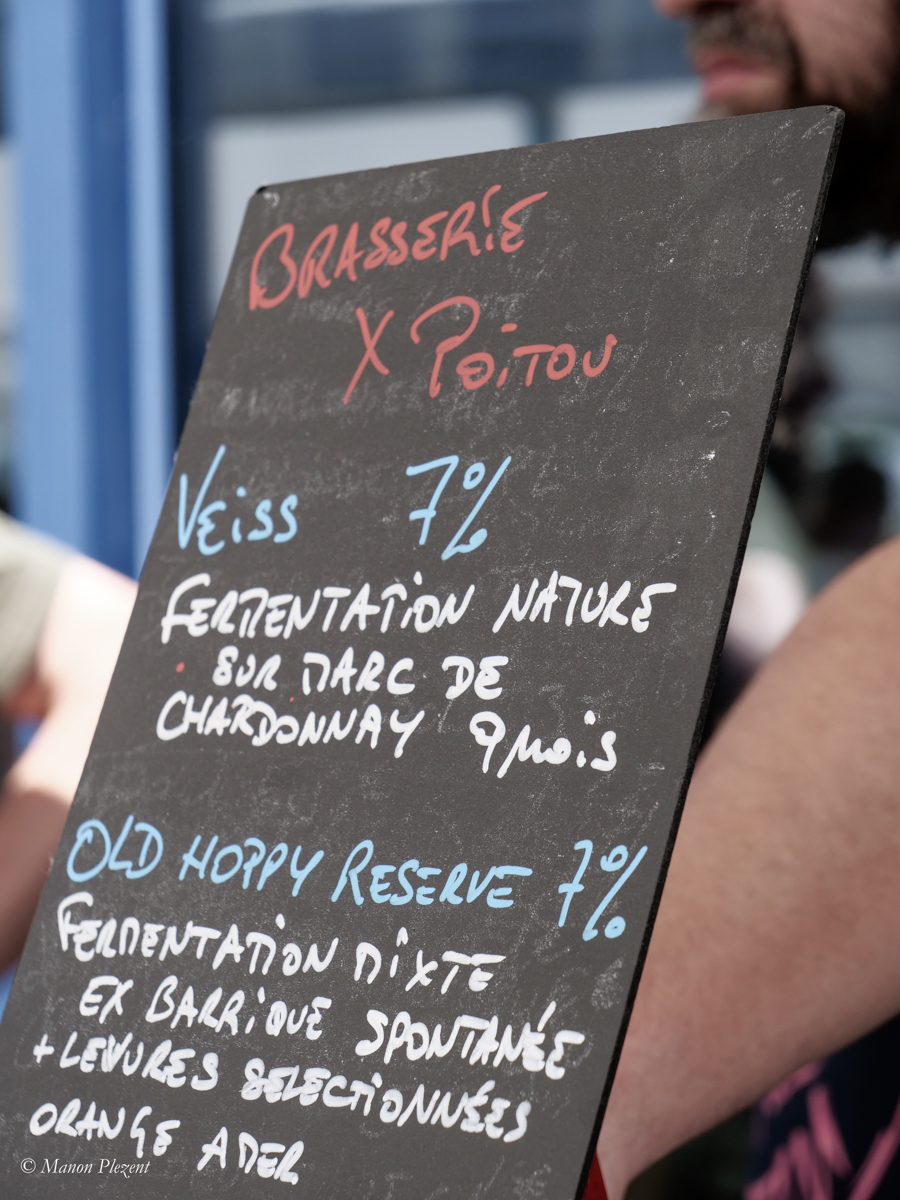 BRASSERIE
X POITOU
VEISS 7%
FERMENTATION NATURE
SUR MARC DE
CHARDONNAY 9 mois
OLD HOPPY RESERVE 7%
FERMENTATION MIXTE
EX BARRIQUE SPONTANÉE
+ LEVURES SELECTIONNÉES
ORANGE AMER
© Manon Plezent